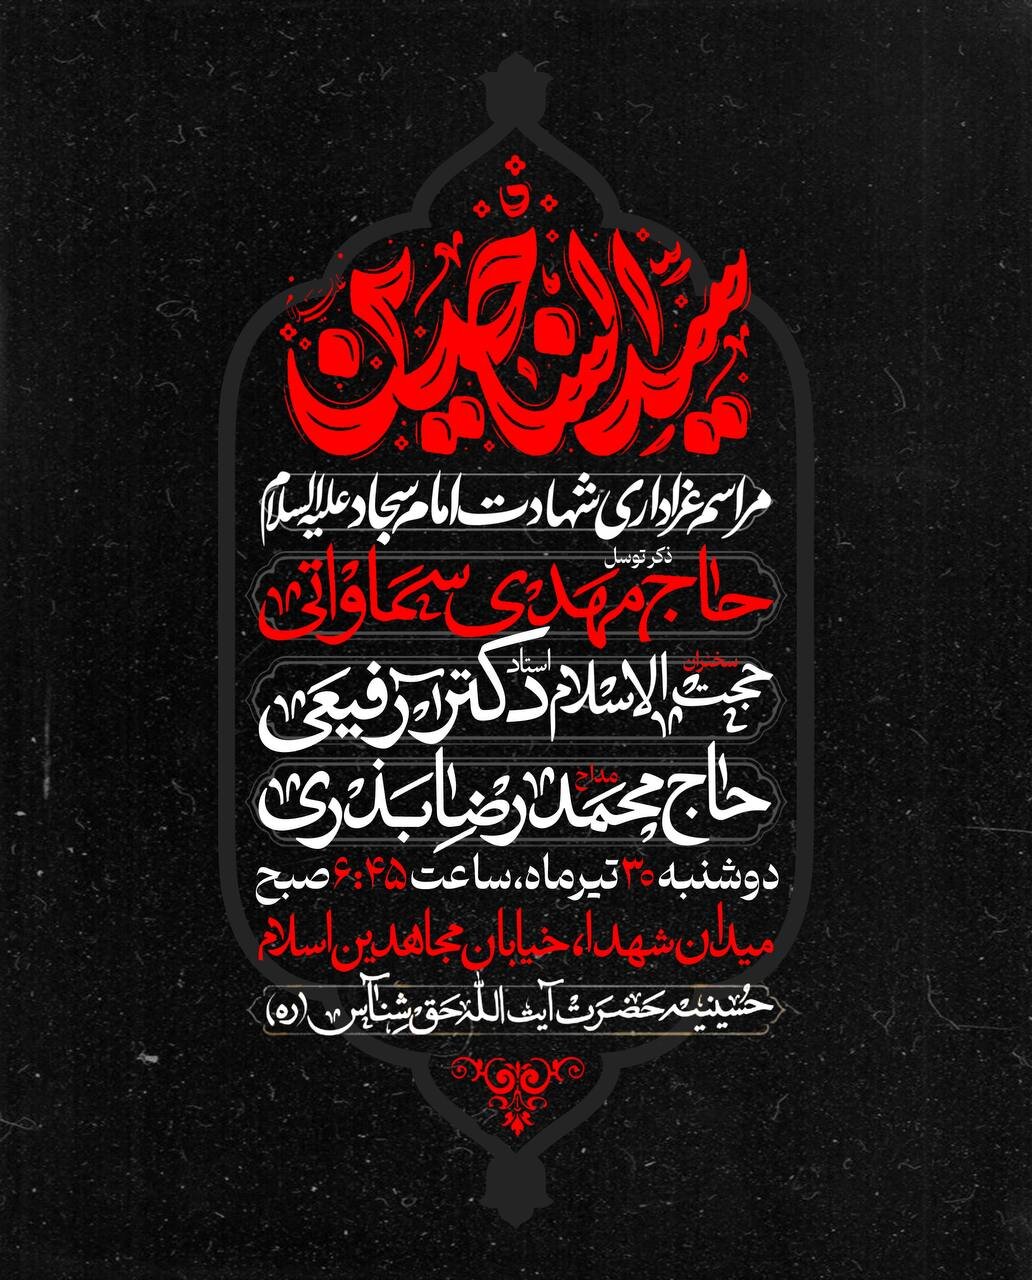 سیدالساجدین
مراسم عزاداری شهادت امام سجاد علیه السلام
ذکر توسل
حاج مهدی سماواتی
سخنران
حجت الاسلام استاد دکتر رفیعی
مداح
حاج محمدرضا بذری
دوشنبه ۳۰ تیرماه، ساعت ۶:۴۵ صبح
میدان شهدا، خیابان مجاهدین اسلام
حسینیه حضرت آیت الله حق شناس (ره)